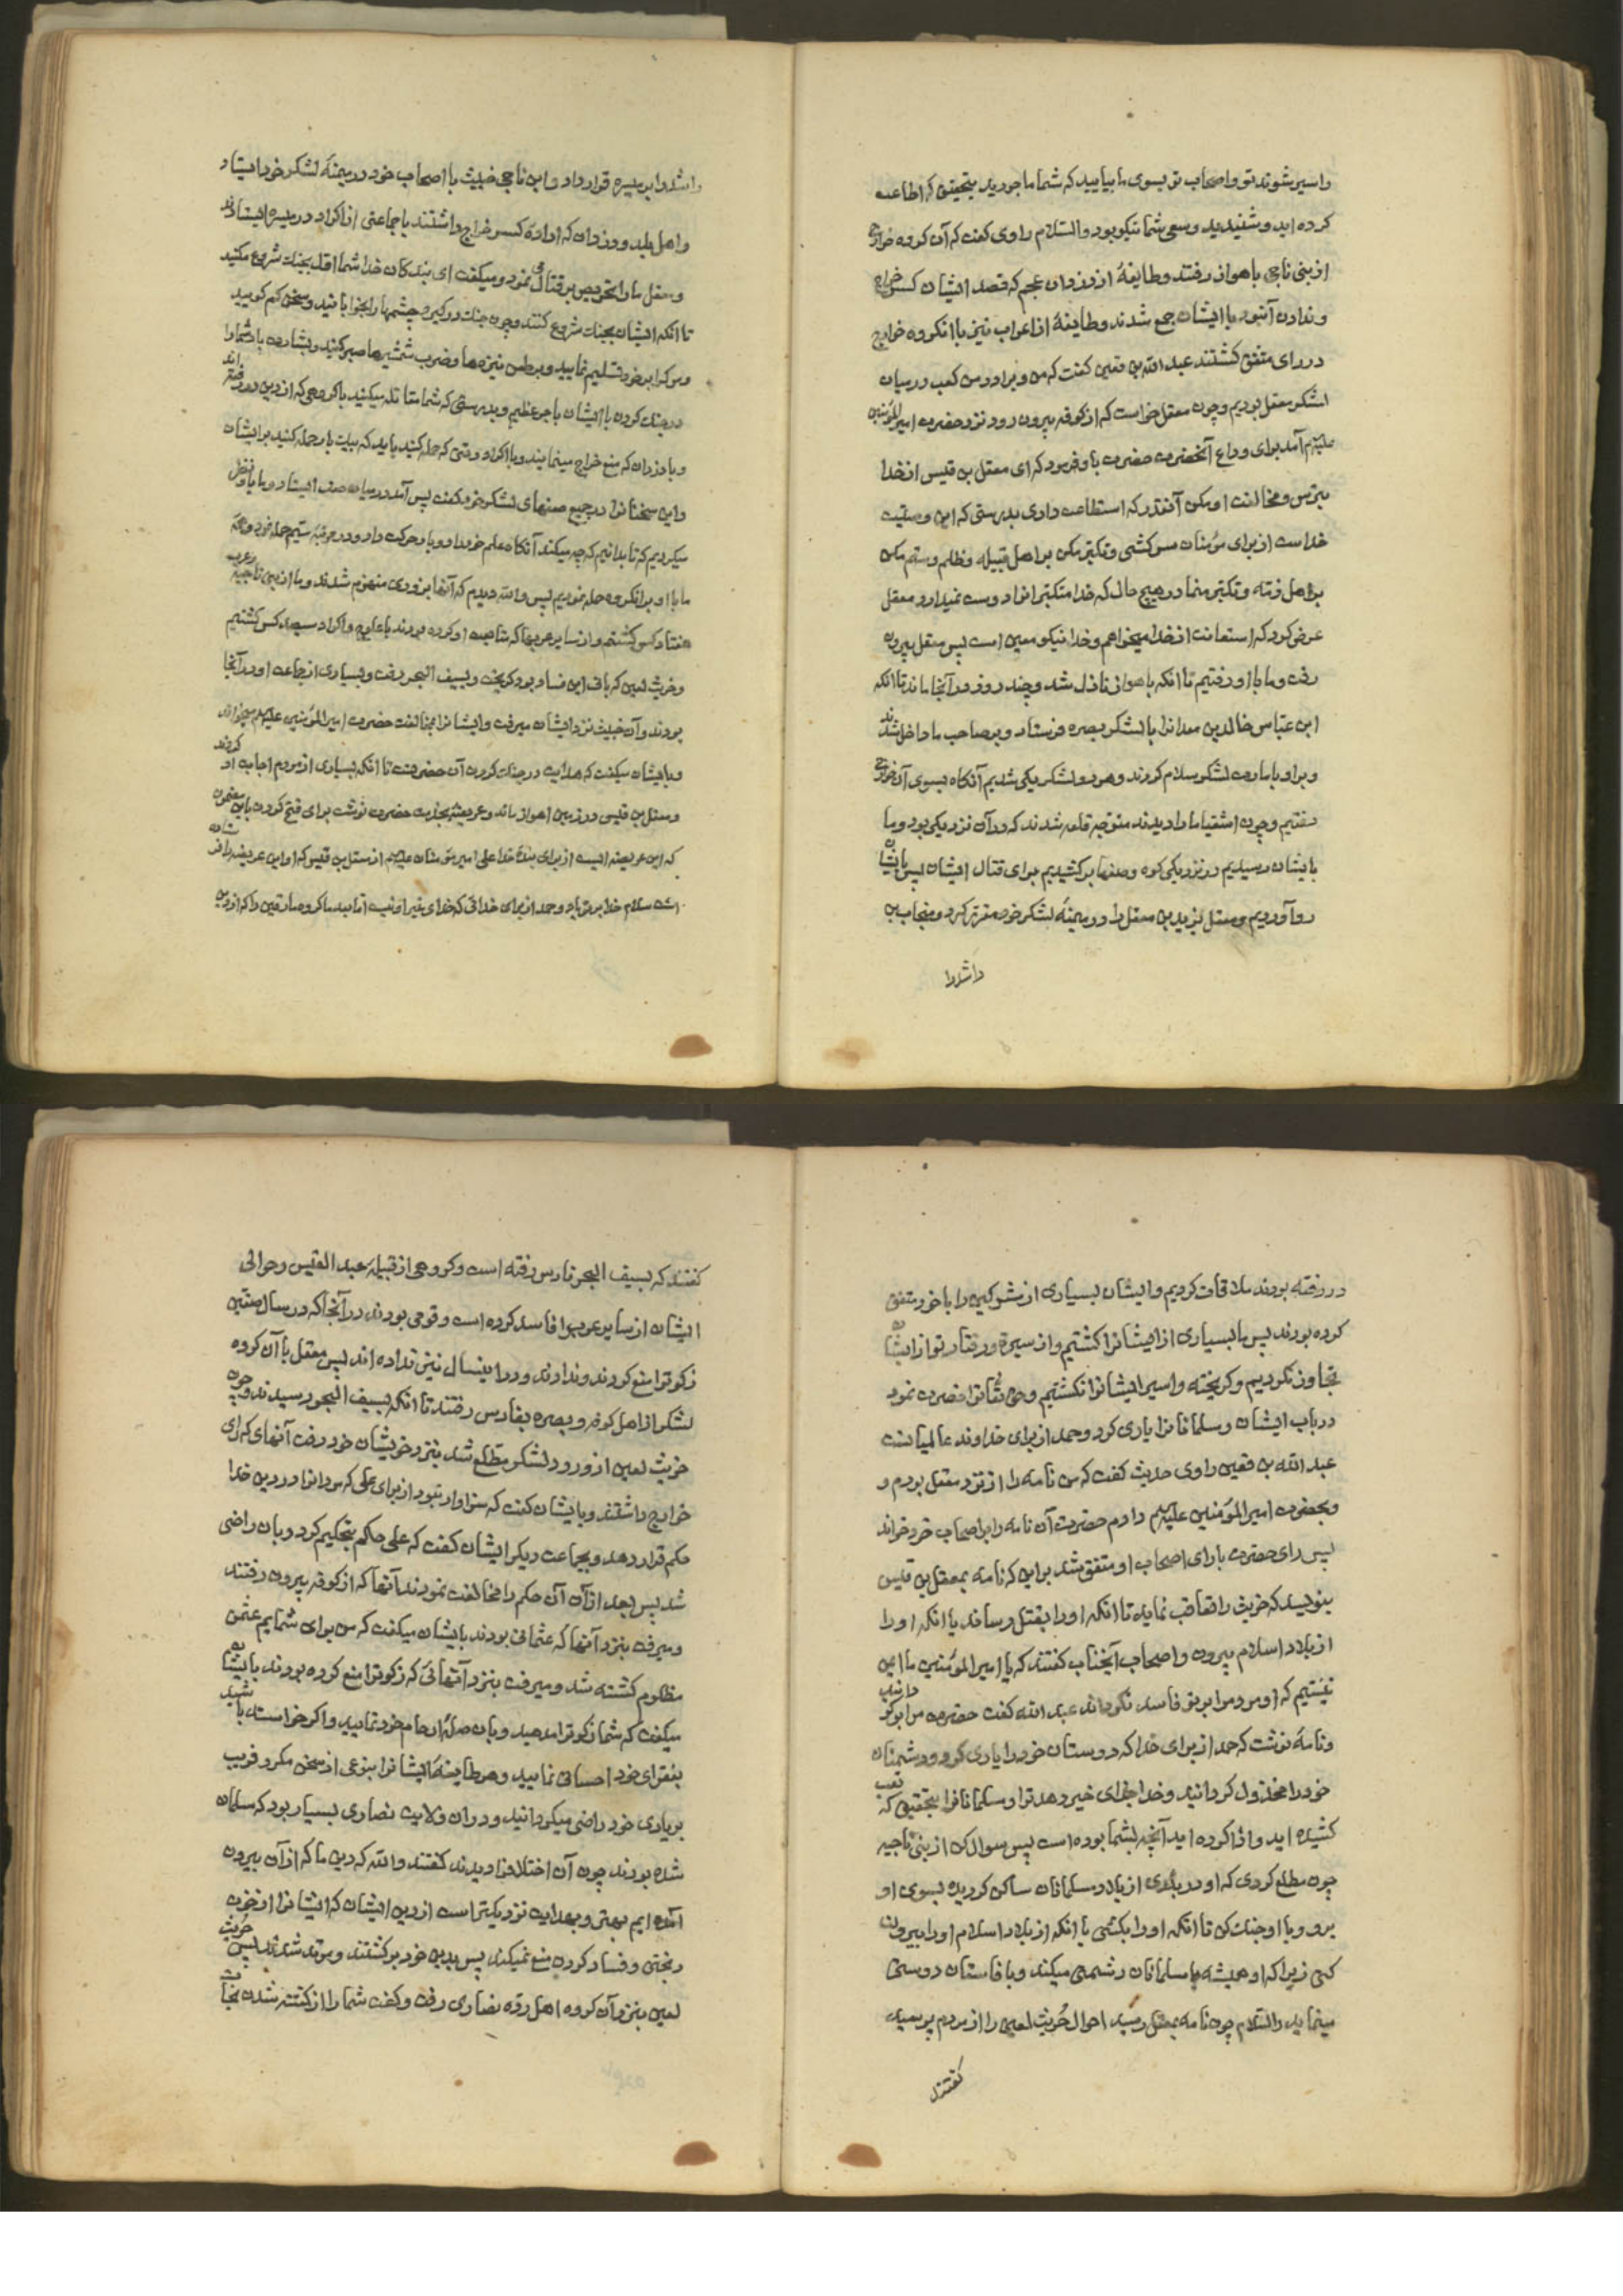 واسیر شوند تو واصحاب تو بسوی ما بیایید که شما ماجورید بتحقیق که اطاعت
کرده اید و شنیدید وسعی شما نیکو بود والسّلام راوی کفت که آن کروه خوارج
از بنی ناجی باهواز رفتند وطایفهٔ از دزدان عجم که قصد ایشان کسر خراج
وندادن آن بود با ایشان جمع شدند وطایفهٔ از اعراب نیز با انکروه خوارج
در رای متفق کشتند عبد الله بن قعین کفت که من و برادر من کعب در میان
لشکر معقل بودیم وچون معقل خواست که از کوفه بیرون رود نزد حضرت امیر المؤمنین
علیهم آمد برای وداع آنحضرت حضرت باو فرمود که ای معقل بن قیس از خدا
بترس ومخالفت او مکن آنقدر که استطاعت داری بدرستی که این وصیت
خداست از برای مؤمنان سرکشی وتکبر مکن بر اهل قبیله وظلم وستم مکن
بر اهل ذمّه وتکبر منما در هیچ حال که خدا متکبّرانرا دوست نمیدارد معقل
عرض کرد که استعانت از خدا میخواهم وخدا نیکو معین است پس معقل بیرون
رفت وما با او رفتیم تا انکه باهواز نازل شد وچند روز در آنجا ماند تا انکه
ابن عبّاس خالد بن معدانرا با لشکر بصره فرستاد وبر صاحب ما داخل شدند
وبر او بامارت لشکر سلام کردند وهر دو لشکر یکی شدیم آنکاه بسوی آن خوارج
رفتیم وچون اشقیا ما را دیدند متوجه قلعه شدند که در آن نزدیکی بود وما
بایشان رسیدیم در نزدیکی کوه وصفها برکشیدیم برای قتال ایشان پس بایشان
رو آوردیم ومعقل یزید بن معقل را در میمنهٔ لشکر خود مقرّر کرد ومنجاب بن
راشدرا
راشدرا بر میسره قرار داد وابن ناجی خبیث با اصحاب خود در میمنهٔ لشکر خود ایستاد
واهل بلد ودزدان که ارادهٔ کسر خراج داشتند با جماعتی از اکراد در میسره ایستادند
ومعقل ما را تحریص بر قتال می نمود ومیکفت ای بندکان خدا شما اوّل بجنك شروع مکنید
تا انکه ایشان بجنك شروع کنند وچون جنك درکیرد چشمها را بخوابانید وسخن کم کویید
ومرک را بر خود تسلیم نمایید وبر طعن نیزه ها وضرب شمشیرها صبر کنید وبشارت باد شما را
در جنك کردن با ایشان باجر عظیم وبدرستی که شما مقاتله میکنید با کروهی که از دین در رفته اند
وبا دزدان که منع خراج مینمایند وبا اکراد ووقتی که حمله کنید باید که بیك بار حمله کنید بر ایشان
واین سخنانرا در جمیع صفهای لشکر خود کفت پس آمد در میان صف ایستاد وما باو نظر
میکردیم که تا بدانیم که چه میکند آنکاه علم خود را دو بار حرکت داد ودر مرتبهٔ سیّم حمله نمود وهمه
ما با او بر انکروه حمله نمودیم پس والله دیدم که آنها بزودی منهزم شدند وما از بنی ناجیه وعرب
هفتاد کس کشتیم واز سایر عربها که متابعت او کرده بودند با علوج واکراد سیصد کس کشتیم
وخریّت لعین که باقی این فساد بود کریخت وبسیف البحر رفت وبسیاری از جماعت او در آنجا
بودند وآن خبیث نزد ایشان میرفت وایشانرا بمخالفت حضرت امیر المؤمنین علیهم میخواند
وبایشان میکفت که هدایت در جنك کردن آن حضرتست تا انکه بسیاری از مردم اجابت او کردند
ومعقل بن قیس در زمین اهواز ماند وعریضه بخدمت حضرت نوشت برای فتح کردن باین مضمون
که این عریضه ایست از برای بندهٔ خدا علی امیر مؤمنان علیهم از معقل بن قیس که او این عریضه را
است سلام خدا بر تو باد وحمد از برای خدائی که خدای بغیر او نیست امّا بعد ما کروه مارقین را که از دین
در رفته بودند ملاقات کردیم وایشان بسیاری از مشرکین را با خود متفق
کرده بودند پس ما بسیاری از ایشانرا کشتیم واز سیره ورفتار تو از ایشان
تجاوز نکردیم وکریخته واسیر ایشانرا نکشتیم وحق تعالی ترا نصرت نمود
در باب ایشان ومسلمانانرا یاری کرد وحمد از برای خداوند عالمیانست
عبد الله بن قعین راوی حدیث کفت که من نامه را از نزد معقل بردم و
وبحضرت امیر المؤمنین علیهم دادم حضرت آن نامه را بر اصحاب خود خواند
پس رای حضرت با رای اصحاب او متفق شد بر این که نامه بمعقل بن قیس
بنویسد که خریّت را تعاقب نماید تا انکه او را بقتل رساند یا انکه او را
از بلاد اسلام بیرون واصحاب آنجناب کفتند که یا امیر المؤمنین ما ایمن
نیستیم که او مردم را بر تو فاسد نکرداند عبد الله کفت حضرت مرا برکردانید
ونامهٔ نوشت که حمد از برای خدا که دوستان خود را یاری کرد ودشمنان
خود را مخذول کردانید وخدا جزای خیر دهد ترا ومسلمانانرا بتحقیق که تعب
کشیده اید وادا کرده اید آنچه بشما بوده است پس سوال کن از بنی ناجیه
چون مطلع کردی که او در بلدی از بلاد مسلمانان ساکن کردیده بسوی او
برو وبا او جنك کن تا انکه او را بکشی یا انکه از بلاد اسلام او را بیرون
کنی زیرا که او همیشه با مسلمانان دشمنی میکند وبا فاسقان دوستی
مینماید والسّلام چون نامه بمعقل رسید احوال خُریّت لعین را از مردم پرسید
کفتند
کفتند که بسیف البحر فارس رفته است وکروهی از قبیلهٔ عبد القیس وحوالی
ایشان از سایر عرب را فاسد کرده است وقومی بودند در آنجا که در سال صفّین
زکوة را منع کردند وندادند ودر اینسال نیز نداده اند پس معقل با آن کروه
لشکر از اهل کوفه وبصره بفارس رفتند تا انکه بسیف البحر رسیدند وچون
خریّت لعین از ورود لشکر مطّلع شد بنزد خویشان خود رفت آنهای که رای
خوارج داشتند وبایشان کفت که سزاوار نبود از برای علی که مردانرا در دین خدا
حکم قرار دهد وبجماعت دیکر ایشان کفت که علی حاکم بتحکیم کرد وبان راضی
شد پس بعد از آن آن حکم را مخالفت نمودند آنها که از کوفه بیرون رفتند
ومیرفت بنزد آنها که عثمانی بودند بایشان میکفت که من برای شمایم عثمن
مظلوم کشته شد ومیرفت بنزد آنهائی که زکوة را منع کرده بودند بایشان
میکفت که شما زکوة را مدهید وبان صلهٔ ارحام خود نمایید واکر خواسته باشید
بفقرای خود احسانی نمایید وهر طایفهٔ ایشانرا بنوعی از سخن مکر وفریب
بر یاری خود راضی میکردانید ودر ان ولایت نصاری بسیار بود که مسلمان
شده بودند چون آن اختلافرا دیدند کفتند والله که دین ما که از آن بیرون
آمده ایم بهتر وبهدایت نزدیکتر است از دین ایشان که ایشانرا از خون
ریختن وفساد کردن منع نمیکند پس بدین خود برکشتند ومرتد شدند پس خُریّت
لعین بنزد آن کروه اهل ردّه نصاری رفت وکفت شما را از کشته شدن نجات